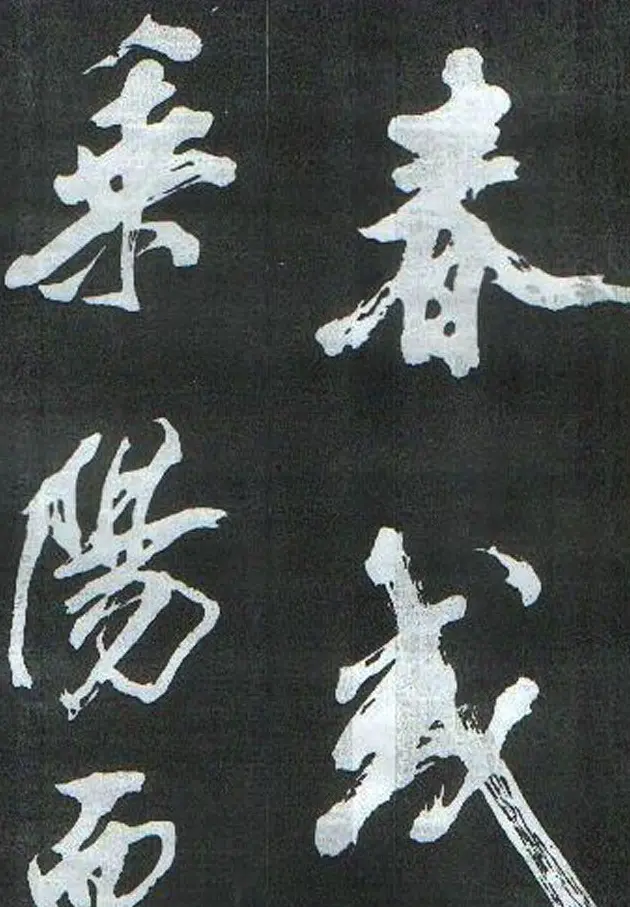 春
乘陽而